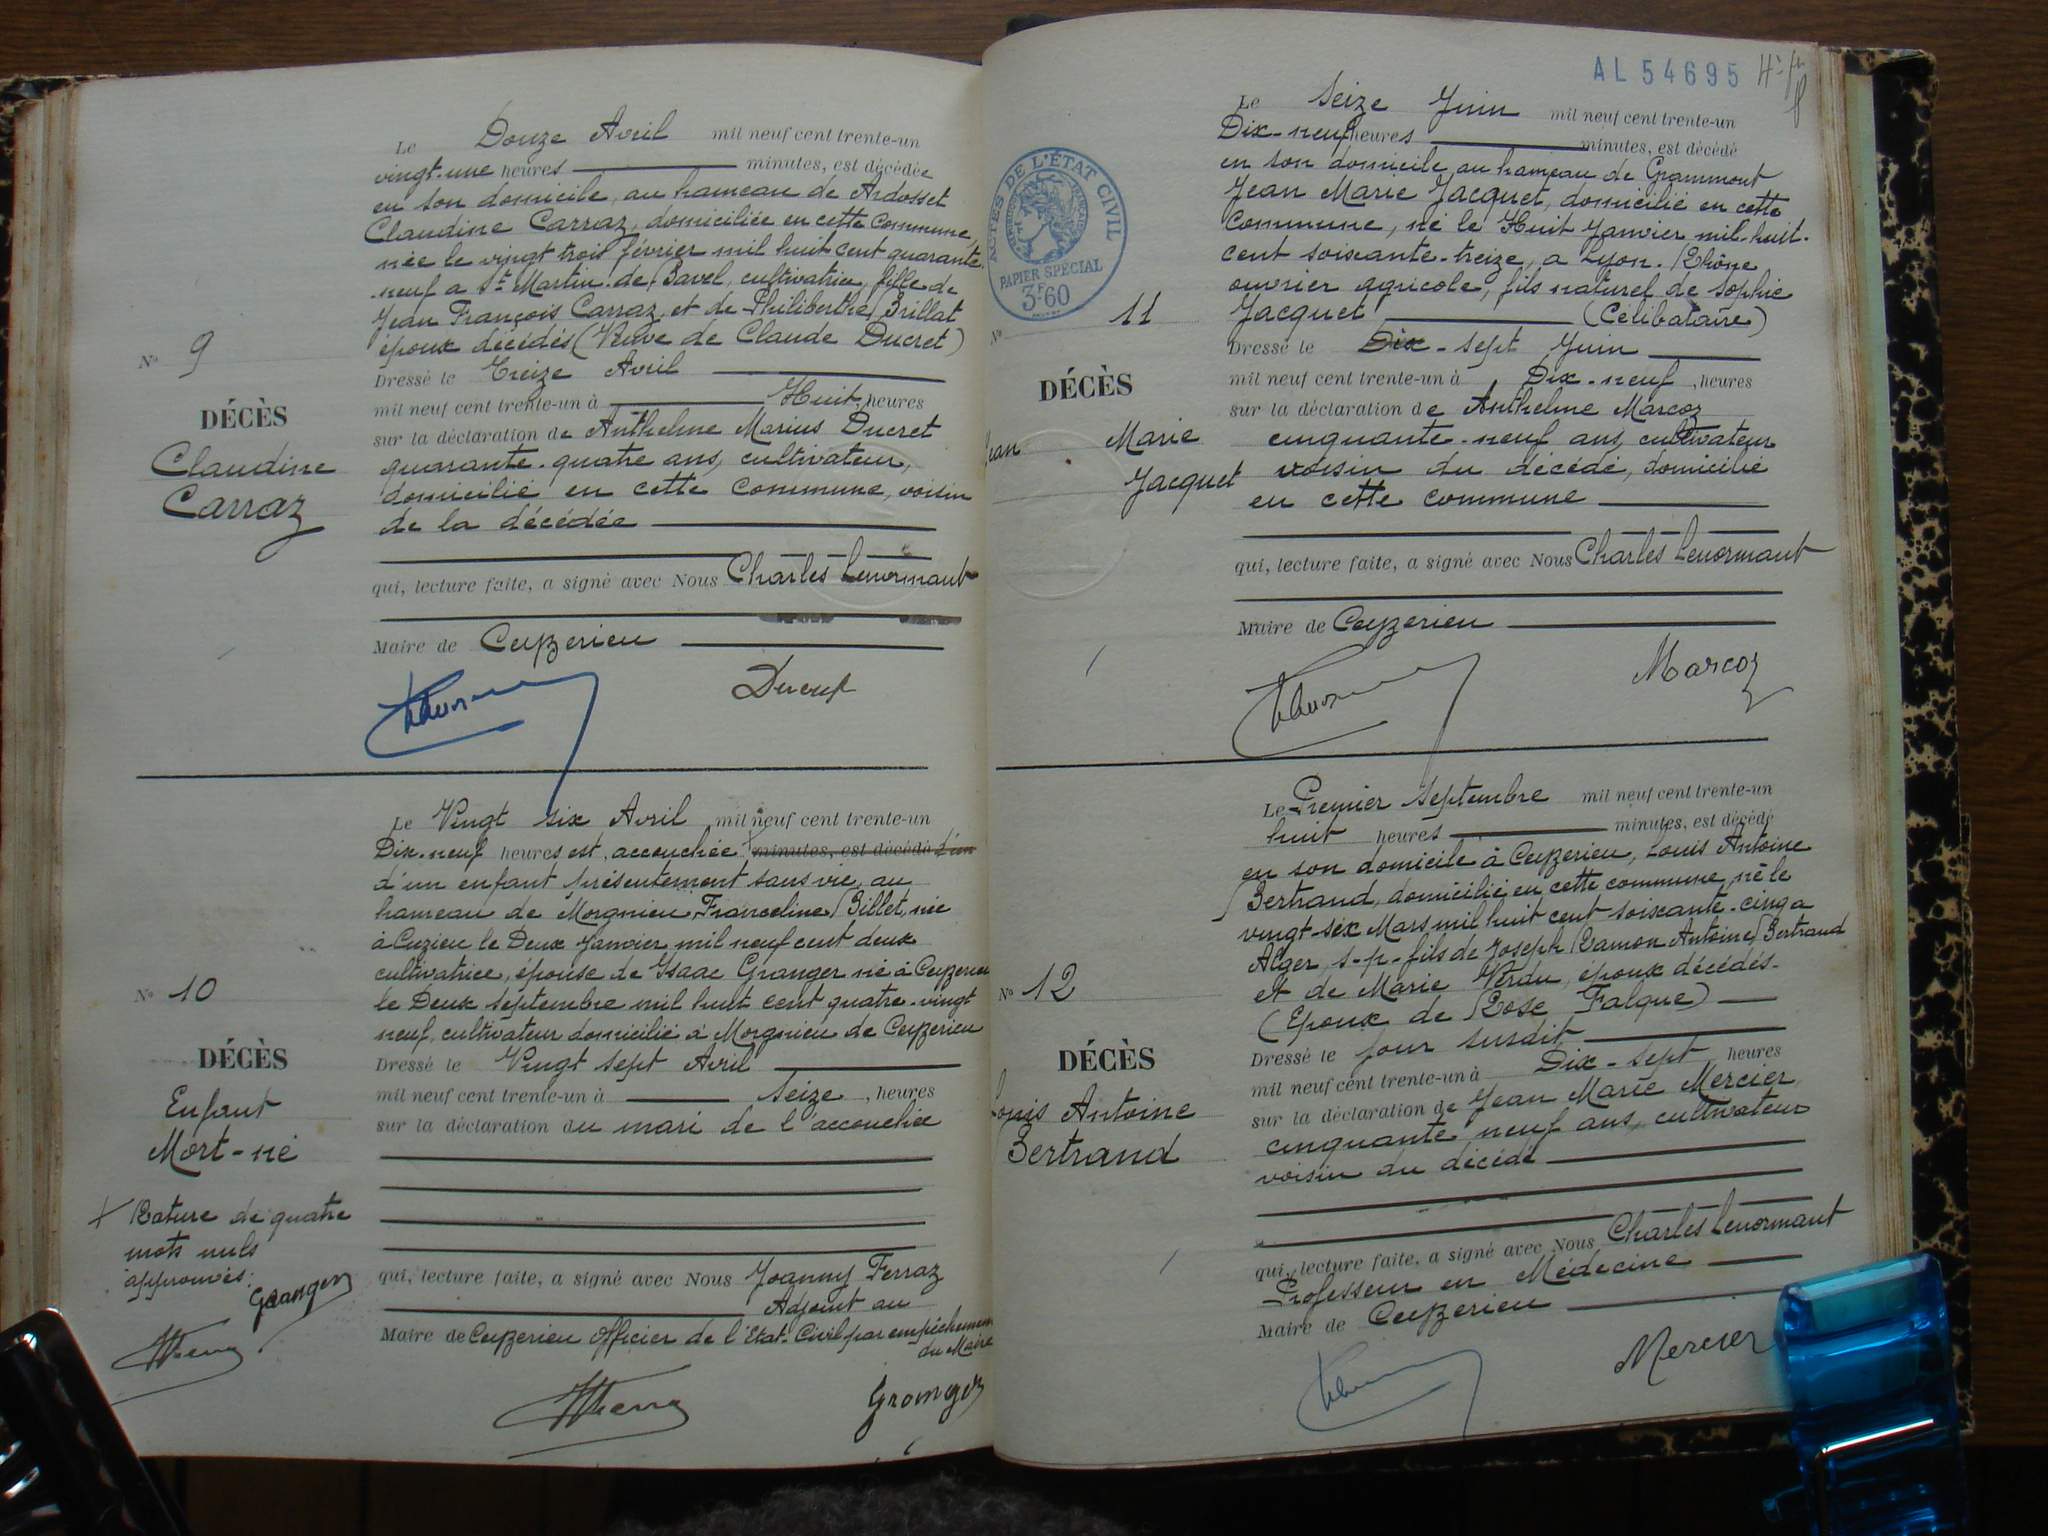 N° 9
DÉCÈS
Claudine
Carraz
Le Douze Avril mil neuf cent trente-un
vingt-une heures minutes, est décédée
en son domicile, au hameau de Ardosset
Claudine Carraz, domiciliée en cette commune,
née le vingt trois février mil huit cent quarante-
neuf a St Martin-de-Bavel, cultivatrice, fille de
Jean François Carraz, et de Philiberthe Brillat
époux décédés (Veuve de Claude Ducret)
Dressé le Treize Avril
mil neuf cent trente-un à Huit, heures
sur la déclaration de Anthelme Marius Ducret
quarante-quatre ans, cultivateur,
domicilié en cette commune, voisin
de la décédée
qui, lecture faite, a signé avec Nous Charles Lenormant
Maire de Ceyzerieu
Ducret
N° 10
DÉCÈS
Enfant
Mort-né
+ Rature de quatre
mots nuls
approuvés.
Granger
Le Vingt six Avril mil neuf cent trente-un
Dix-neuf heures est accouchée + minutes, est décédé d'un
d'un enfant présentement sans vie, au
hameau de Morgnieu, Franceline Billet, née
à Cuzieu le Deux Janvier mil neuf cent deux
cultivatrice, épouse de Isaac Granger né à Ceyzerieu
le Deux septembre mil huit cent quatre-vingt
neuf, cultivateur domicilié à Morgnieu de Ceyzerieu
Dressé le Vingt sept Avril
mil neuf cent trente-un à Seize, heures
sur la déclaration du mari de l'accouchée
qui, lecture faite, a signé avec Nous Joanny Ferraz
Adjoint au
Maire de Ceyzerieu Officier de l'Etat-Civil par empêchement
du Maire
Granger
AL 54695
ACTES DE L'ÉTAT CIVIL
PAPIER SPÉCIAL
3F.60
N° 11
DÉCÈS
Jean Marie
Jacquet
Le Seize Juin mil neuf cent trente-un
Dix-neuf heures minutes, est décédé
en son domicile au hameau de Grammont
Jean Marie Jacquet, domicilié en cette
commune, né le Huit Janvier mil-huit-
cent soixante-treize, a Lyon-Rhône
ouvrier agricole, fils naturel de Sophie
Jacquet (Célibataire)
Dressé le Dix-sept Juin
mil neuf cent trente-un à Dix-neuf, heures
sur la déclaration de Anthelme Marcoz
cinquante-neuf ans, cultivateur
voisin du décédé, domicilié
en cette commune
qui, lecture faite, a signé avec Nous Charles Lenormant
Maire de Ceyzerieu
Marcoz
N° 12
DÉCÈS
Louis Antoine
Bertrand
Le Premier Septembre mil neuf cent trente-un
huit heures minutes, est décédé
en son domicile à Ceyzerieu, Louis Antoine
Bertrand, domicilié en cette commune, né le
vingt-six Mars mil huit cent soixante-cinq a
Alger, s-p-fils de Joseph Ramon Antoine Bertrand
et de Marie Verdu, époux décédés-
(Epoux de Rose Falque)
Dressé le jour susdit
mil neuf cent trente-un à Dix-sept heures
sur la déclaration de Jean Marie Mercier,
cinquante neuf ans, cultivateur
voisin du décédé
qui, lecture faite, a signé avec Nous Charles Lenormant
Professeur en Médecine
Maire de Ceyzerieu
Mercier